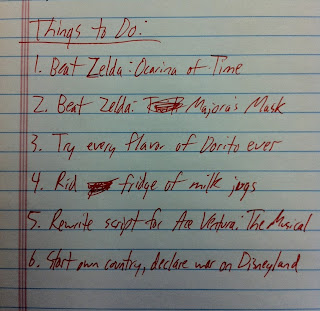 Things to Do:
1. Beat Zelda: Ocarina of Time
2. Beat Zelda: Majora's Mask
3. Try every flavor of Dorito ever
4. Rid fridge of milk jugs
5. Rewrite script for Ace Ventura: The Musical
6. Start own country, declare war on Disneyland